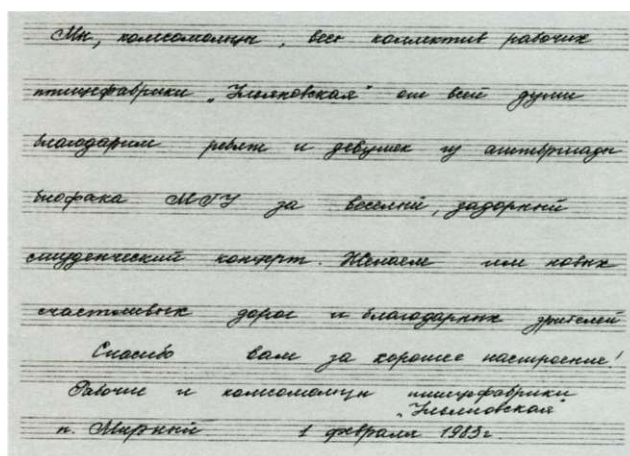 Мы, комсомольцы, весь коллектив рабочих
птицефабрики "Ульяновская" от всей души
благодарим ребят и девушек из агитбригады
биофака МГУ за веселый, задорный
студенческий концерт. Желаем им новых
счастливых дорог и благодарных зрителей
Спасибо вам за хорошее настроение!
Рабочие и комсомольцы птицефабрики
"Ульяновская"
п. Мирный 1 февраля 1983г.